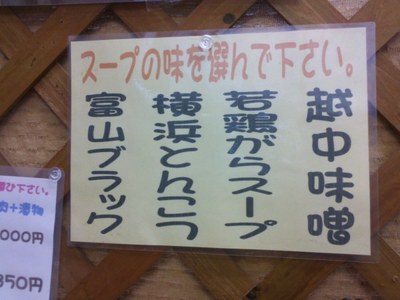 スープの味を選んで下さい。
越中味噌
若鶏がらスープ
横浜とんこつ
富山ブラック
び下さい。
肉+漬物
000円
350円